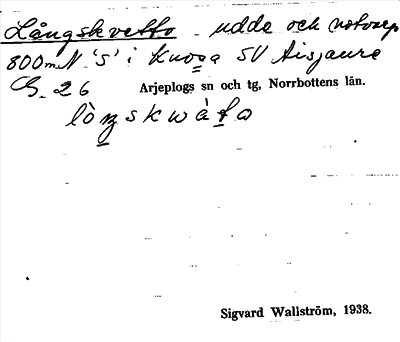 Långskvetto udde och notvarp
800 m N. 'S' i Knosa SV Aisjaure
G. 26 Arjeplogs sn och tg, Norrbottens län.
Sigvard Wallström, 1938.